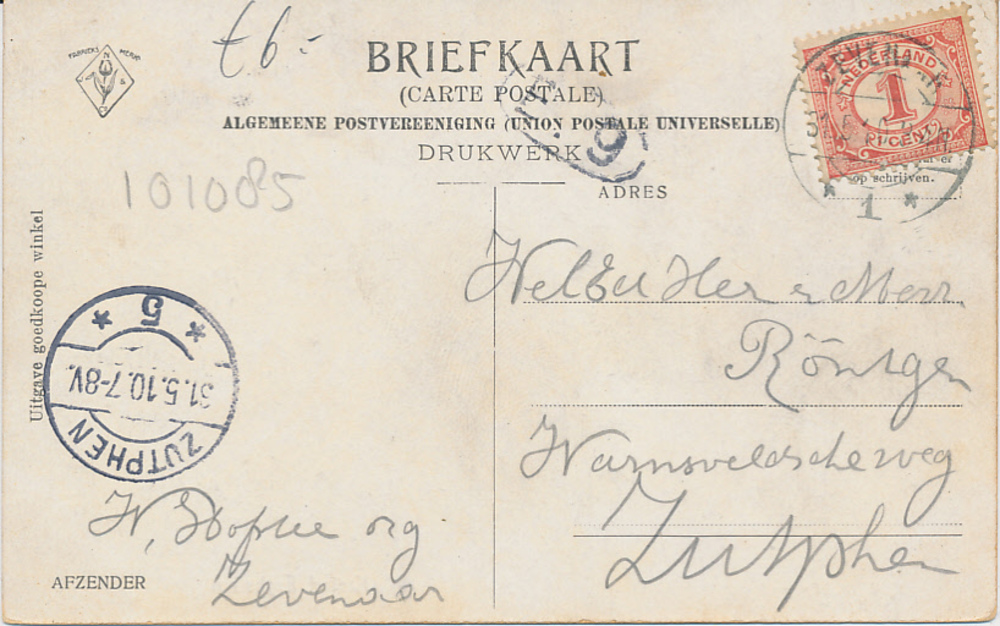 FABRIEKS MERK
f 6.-
BRIEFKAART
(CARTE POSTALE)
ALGEMEENE POSTVEREENIGING (UNION POSTALE UNIVERSELLE)
DRUKWERK
9
NEDERLAND
1
CENT
op schrijven.
1
101085
ADRES
WelEd Her e Mevr
Röntgen
Warnsveldscheweg
Zutphen
Uitgave goedkoope winkel
5
31.5.10.7-8V.
ZUTPHEN
W,
Zevenaar
AFZENDER